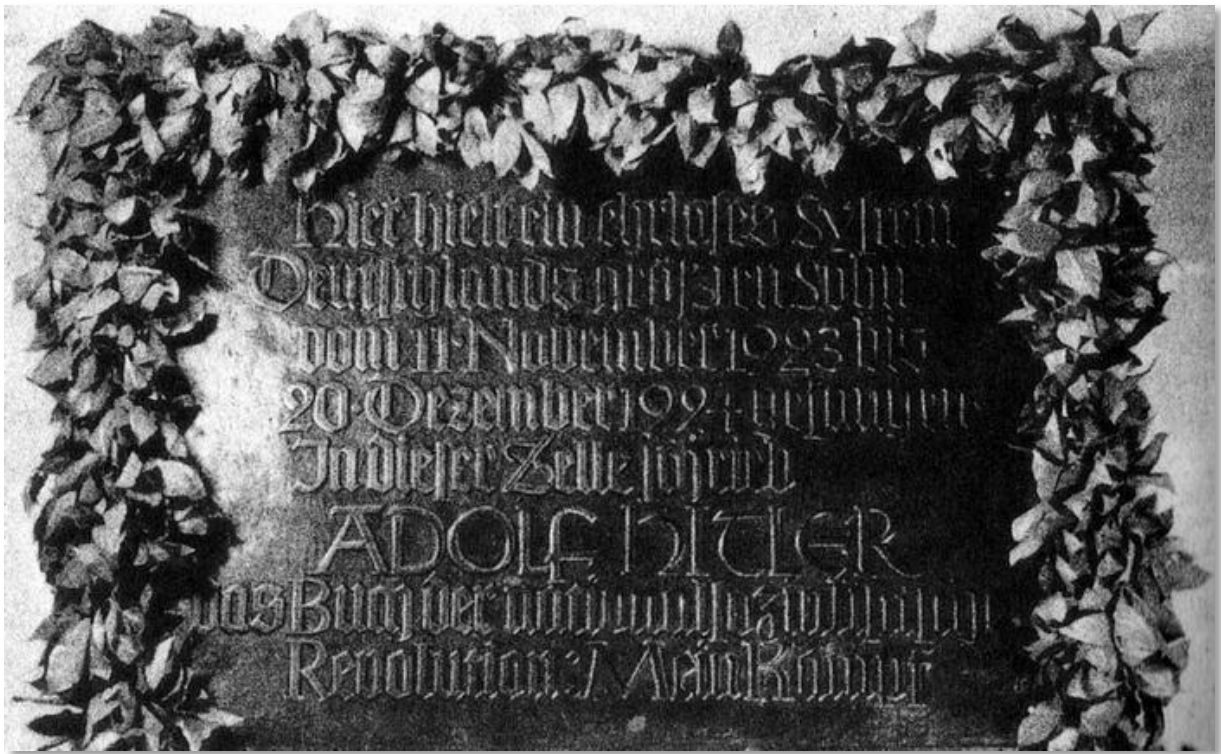 Hier hielt ein ehrloses System
Deutschlands größten Sohn
vom 11. November 1923 bis
20. Dezember 1924 gefangen
In dieser Zelle schrieb
ADOLF HITLER
das Buch der nationalsozialistischen
Revolution: Mein Kampf